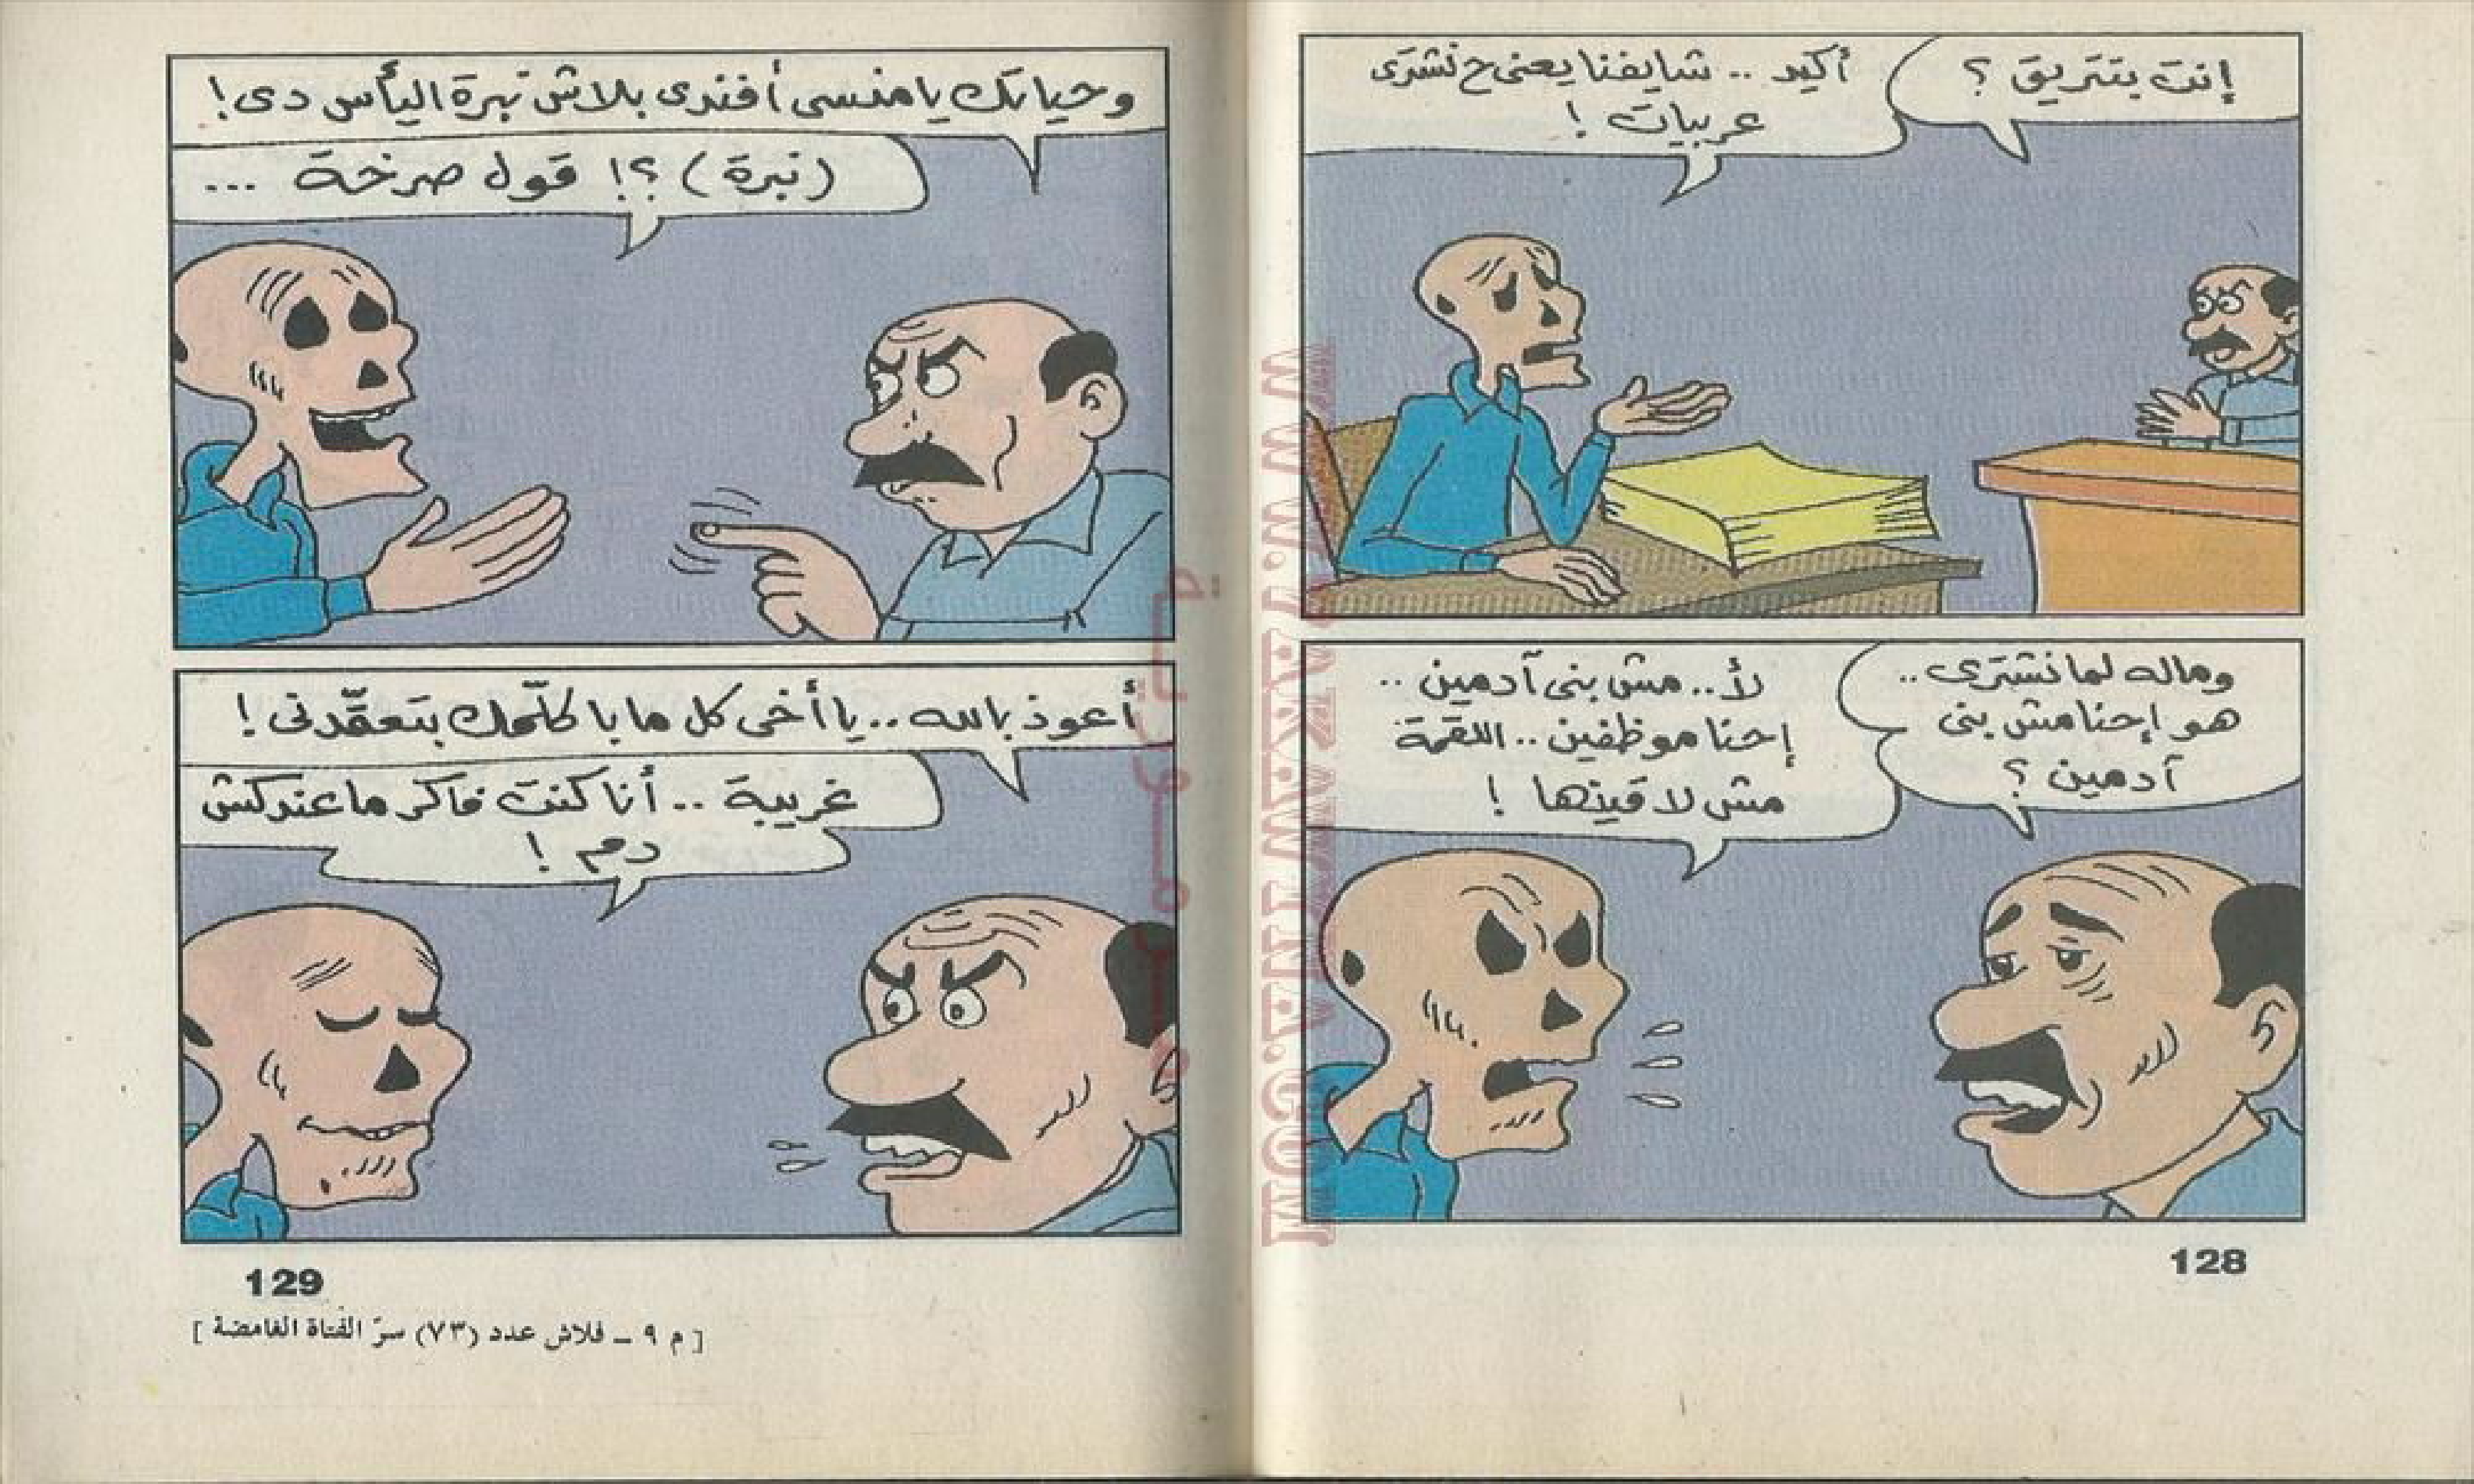 إنت بتتريق ؟
أكيد .. شايفنا يعنى ح نشترى
عربيات !
وماله لما نشترى ..
هو إحنا مش بنى
آدمين ؟
لأ .. مش بنى آدمين ..
إحنا موظفين .. اللقمة
مش لاقينها !
128
وحياتك يا منسى أفندى بلاش نبرة اليأس دى !
(نبرة) ؟! قول صرخة ...
أعوذ بالله .. يا أخى كل ما باكلّمك بتعقّدنى !
غريبة .. أنا كنت فاكر ماعندكش
دم !
129
[ م ٩ ــ فلاش عدد (٧٣) سرّ الفتاة الغامضة ]